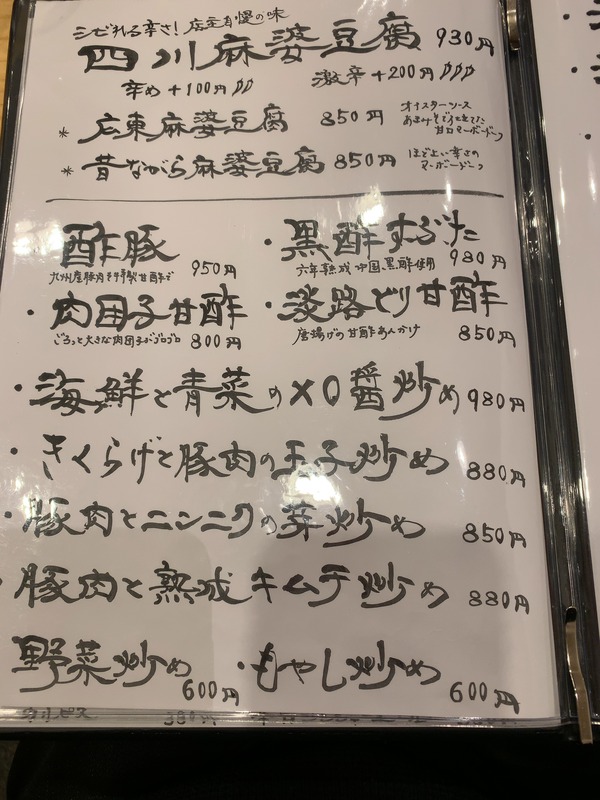 シビれる辛さ!店主自慢の味
四川麻婆豆腐 930円
辛め+100円 激辛+200円
* 広東麻婆豆腐 850円 オイスターソース
甘口マーボードーフ
* 昔ながら麻婆豆腐 850円 ほどよい辛さの
マーボードーフ
酢豚 950円
九州産豚肉を特製甘酢で
・黒酢すぶた 980円
六年熟成中国黒酢使用
・肉団子甘酢 800円
ごろっと大きな肉団子がゴロゴロ
・淡路どり甘酢 850円
唐揚げの甘酢あんかけ
・海鮮と青菜のXO醤炒め 980円
・きくらげと豚肉の玉子炒め 880円
・豚肉とニンニクの芽炒め 850円
・豚肉と熟成キムチ炒め 880円
野菜炒め 600円
・もやし炒め 600円
カルピス 380円